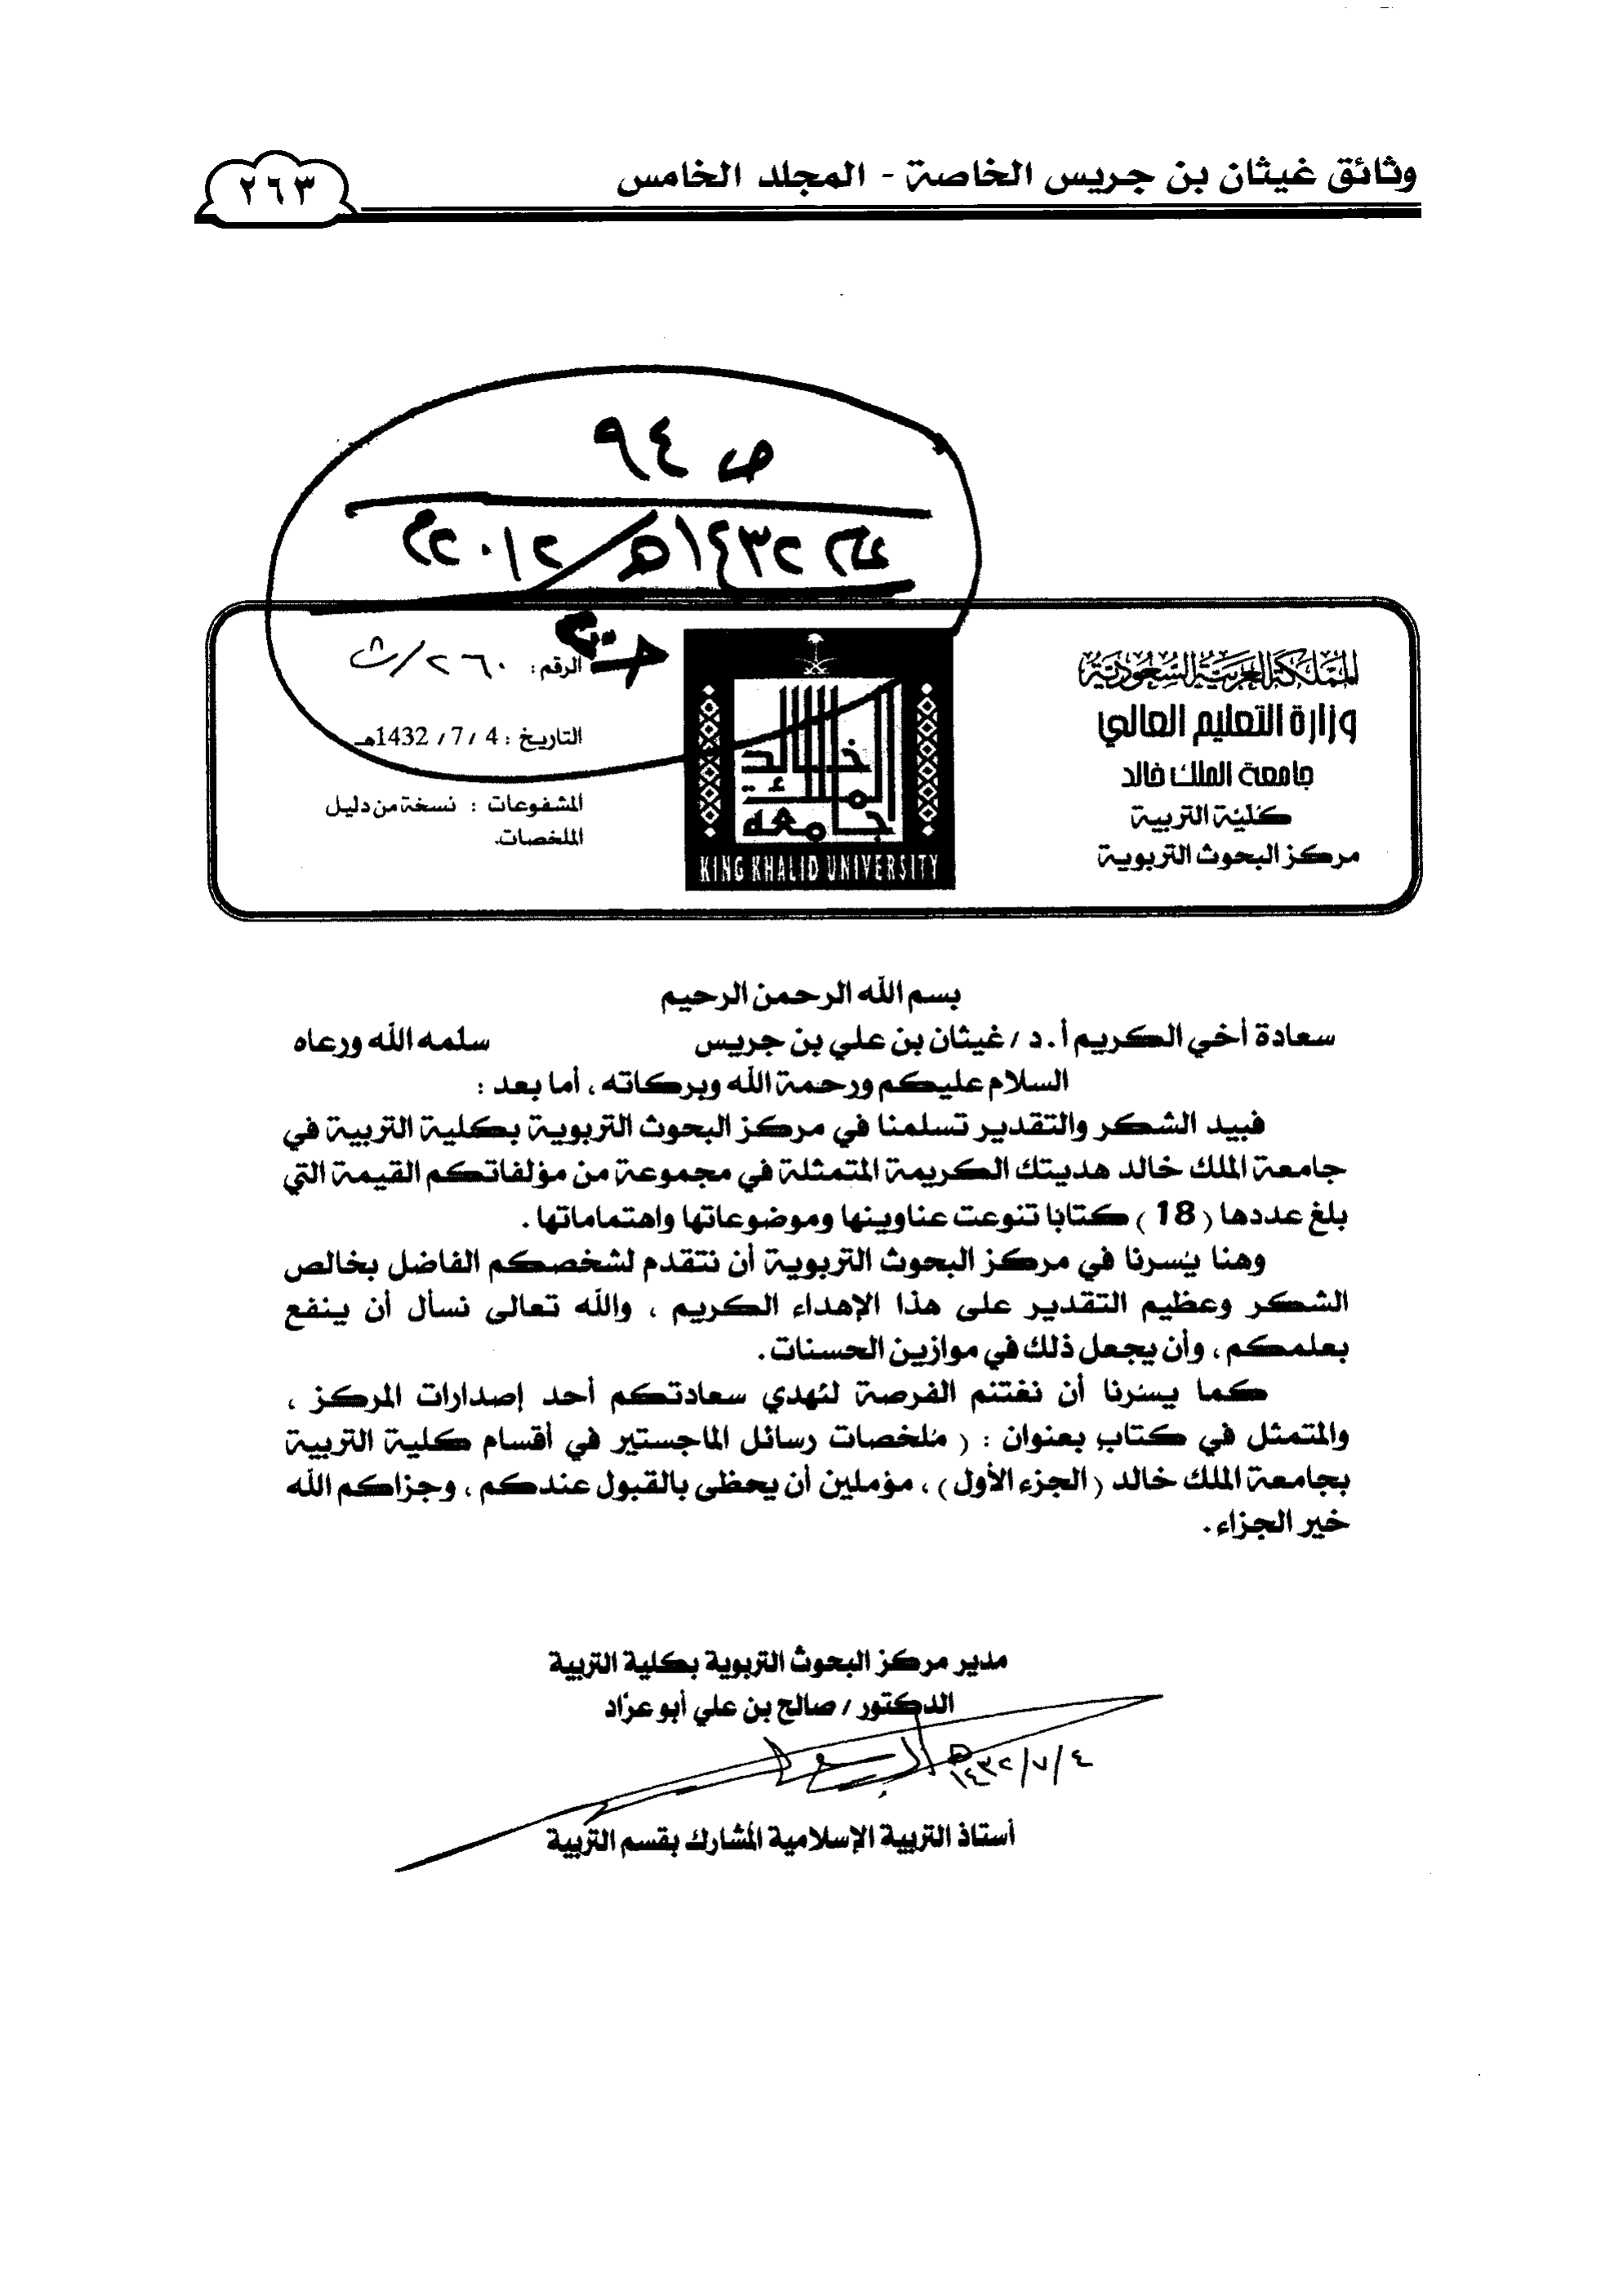 وثائق غيثان بن جريس الخاصة - المجلد الخامس
٢٦٣
ص ٩٤
١٤٣٢هـ/٢٠١٢م
المملكة العربية السعودية
وزارة التعليم العالي
جامعة الملك خالد
كلية التربية
مركز البحوث التربوية
جامعة الملك خالد
KING KHALID UNIVERSITY
الرقم: ٢٦٠/
التاريخ: 4 / 7 / 1432هـ
المشفوعات : نسخة من دليل
الملخصات.
بسم الله الرحمن الرحيم
سعادة أخي الكريم أ. د / غيثان بن علي بن جريس سلمه الله ورعاه
السلام عليكم ورحمة الله وبركاته، أما بعد :
فبيد الشكر والتقدير تسلمنا في مركز البحوث التربوية بكلية التربية في
جامعة الملك خالد هديتك الكريمة المتمثلة في مجموعة من مؤلفاتكم القيمة التي
بلغ عددها ( 18 ) كتابا تنوعت عناوينها وموضوعاتها واهتماماتها .
وهنا يُسرنا في مركز البحوث التربوية أن نتقدم لشخصكم الفاضل بخالص
الشكر وعظيم التقدير على هذا الإهداء الكريم ، والله تعالى نسأل أن ينفع
بعلمكم ، وأن يجعل ذلك في موازين الحسنات .
كما يسرنا أن نغتنم الفرصة لنُهدي سعادتكم أحد إصدارات المركز ،
والمتمثل في كتاب بعنوان : ( مُلخصات رسائل الماجستير في أقسام كلية التربية
بجامعة الملك خالد ( الجزء الأول ) ، مؤملين أن يحظى بالقبول عندكم ، وجزاكم الله
خير الجزاء .
مدير مركز البحوث التربوية بكلية التربية
الدكتور / صالح بن علي أبو عرّاد
٤/٧/١٤٣٢هـ
أستاذ التربية الإسلامية المُشارك بقسم التربية